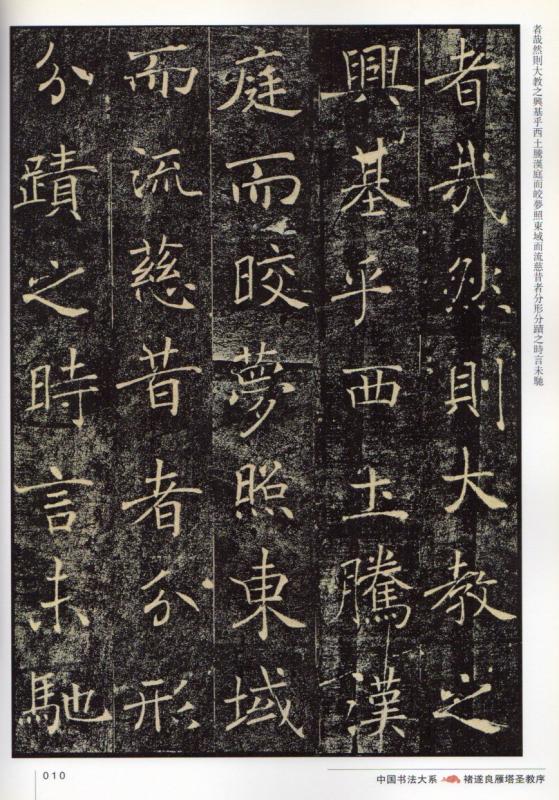 者哉然則大教之
興基乎西土騰漢
庭而皎夢照東域
而流慈昔者分形
分蹟之時言未馳
者哉然則大教之興基乎西土騰漢庭而皎夢照東域而流慈昔者分形分蹟之時言未馳
010
中国书法大系 褚遂良雁塔圣教序